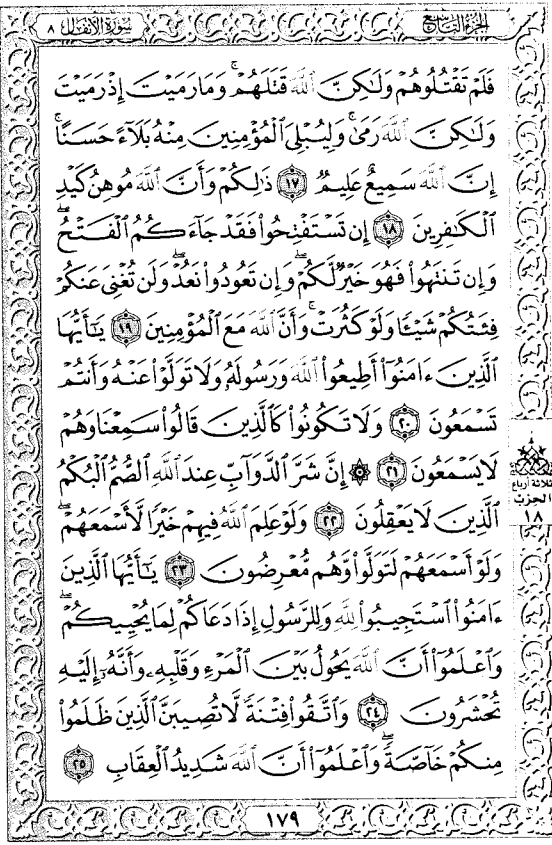 الجزء التاسع
سورة الأنفال ٨
فَلَمْ تَقْتُلُوهُمْ وَلَٰكِنَّ ٱللَّهَ قَتَلَهُمْ ۚ وَمَا رَمَيْتَ إِذْ رَمَيْتَ
وَلَٰكِنَّ ٱللَّهَ رَمَىٰ ۚ وَلِيُبْلِىَ ٱلْمُؤْمِنِينَ مِنْهُ بَلَآءً حَسَنًا ۚ
إِنَّ ٱللَّهَ سَمِيعٌ عَلِيمٌ ١٧ ذَٰلِكُمْ وَأَنَّ ٱللَّهَ مُوهِنُ كَيْدِ
ٱلْكَٰفِرِينَ ١٨ إِن تَسْتَفْتِحُوا۟ فَقَدْ جَآءَكُمُ ٱلْفَتْحُ ۖ
وَإِن تَنتَهُوا۟ فَهُوَ خَيْرٌ لَّكُمْ ۖ وَإِن تَعُودُوا۟ نَعُدْ ۖ وَلَن تُغْنِىَ عَنكُمْ
فِئَتُكُمْ شَيْـًٔا وَلَوْ كَثُرَتْ ۚ وَأَنَّ ٱللَّهَ مَعَ ٱلْمُؤْمِنِينَ ١٩ يَٰٓأَيُّهَا
ٱلَّذِينَ ءَامَنُوٓا۟ أَطِيعُوا۟ ٱللَّهَ وَرَسُولَهُۥ وَلَا تَوَلَّوْا۟ عَنْهُ وَأَنتُمْ
تَسْمَعُونَ ٢٠ وَلَا تَكُونُوا۟ كَٱلَّذِينَ قَالُوا۟ سَمِعْنَا وَهُمْ
لَا يَسْمَعُونَ ٢١ ۞ إِنَّ شَرَّ ٱلدَّوَآبِّ عِندَ ٱللَّهِ ٱلصُّمُّ ٱلْبُكْمُ
ٱلَّذِينَ لَا يَعْقِلُونَ ٢٢ وَلَوْ عَلِمَ ٱللَّهُ فِيهِمْ خَيْرًا لَّأَسْمَعَهُمْ ۖ
وَلَوْ أَسْمَعَهُمْ لَتَوَلَّوا۟ وَّهُم مُّعْرِضُونَ ٢٣ يَٰٓأَيُّهَا ٱلَّذِينَ
ءَامَنُوا۟ ٱسْتَجِيبُوا۟ لِلَّهِ وَلِلرَّسُولِ إِذَا دَعَاكُمْ لِمَا يُحْيِيكُمْ ۖ
وَٱعْلَمُوٓا۟ أَنَّ ٱللَّهَ يَحُولُ بَيْنَ ٱلْمَرْءِ وَقَلْبِهِۦ وَأَنَّهُۥٓ إِلَيْهِ
تُحْشَرُونَ ٢٤ وَٱتَّقُوا۟ فِتْنَةً لَّا تُصِيبَنَّ ٱلَّذِينَ ظَلَمُوا۟
مِنكُمْ خَآصَّةً ۖ وَٱعْلَمُوٓا۟ أَنَّ ٱللَّهَ شَدِيدُ ٱلْعِقَابِ ٢٥
ثلاثة أرباع
الحزب
١٨
١٧٩